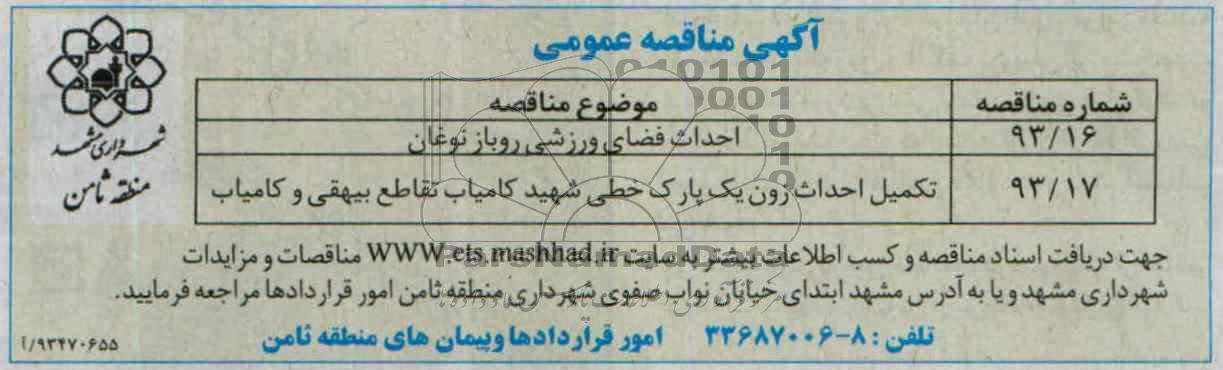 آگهی مناقصه عمومی
شهرداری مشهد
منطقه ثامن
شماره مناقصه موضوع مناقصه
۹۳/۱۶ احداث فضای ورزشی روباز نوغان
۹۳/۱۷ تکمیل احداث زون یک پارک خطی شهید کامیاب تقاطع بیهقی و کامیاب
جهت دریافت اسناد مناقصه و کسب اطلاعات بیشتر به سایت WWW.ets.mashhad.ir مناقصات و مزایدات
شهرداری مشهد و یا به آدرس مشهد ابتدای خیابان نواب صفوی شهرداری منطقه ثامن امور قراردادها مراجعه فرمایید.
تلفن : ۸-۳۳۶۸۷۰۰۶ امور قراردادها وپیمان های منطقه ثامن
۹۳۴۷۰۶۵۵/آ